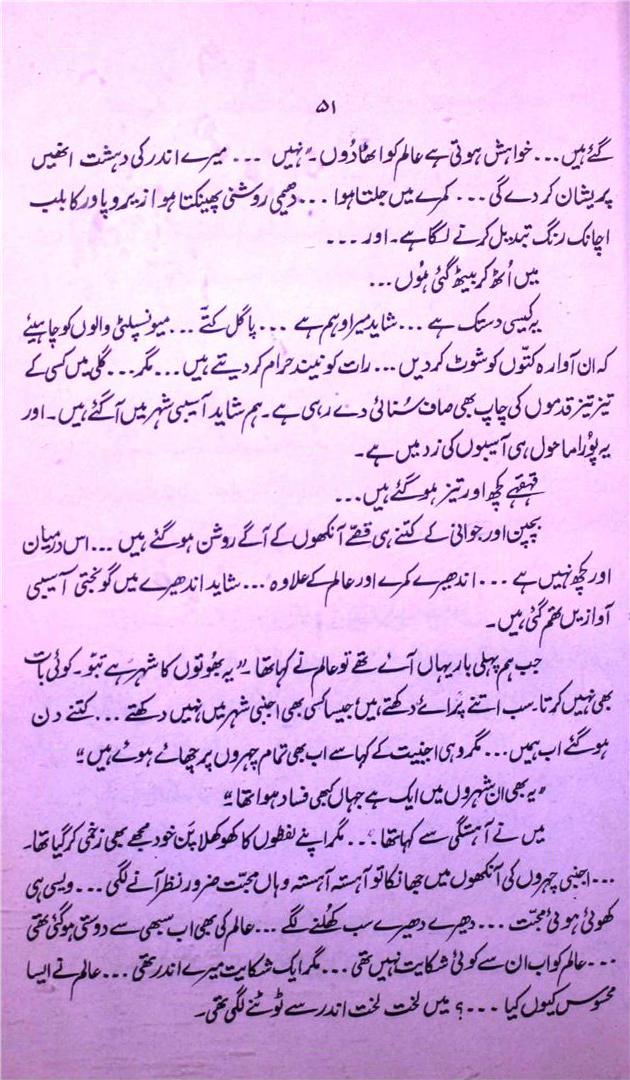 ۵۱
گئے ہیں... خواہش ہوتی ہے عالم کو اٹھا دُوں۔ "نہیں ... میرے اندر کی دہشت انھیں
پریشان کر دے گی... کمرے میں جلتا ہوا ... دھیمی روشنی پھینکتا ہوا زیرو پاور کا بلب
اچانک رنگ تبدیل کرنے لگا ہے۔ اور ...
میں اُٹھ کر بیٹھ گئی ہُوں...
یہ کیسی دستک ہے ... شاید میرا وہم ہے ... پاگل کتّے ... میونسپلٹی والوں کو چاہیئے
کہ ان آوارہ کتّوں کو شوٹ کر دیں... رات کو نیند حرام کر دیتے ہیں... مگر... گلی میں کسی کے
تیز تیز قدموں کی چاپ بھی صاف سُنائی دے رہی ہے۔ ہم شاید آسیبی شہر میں آ گئے ہیں۔ اور
یہ پُورا ماحول ہی آسیبوں کی زد میں ہے۔
قہقہے کچھ اور تیز ہو گئے ہیں...
بچپن اور جوانی کے کتنے ہی قمقمے آنکھوں کے آگے روشن ہو گئے ہیں ... اس درمیان
اور کچھ نہیں ہے ... اندھیرے کمرے اور عالم کے علاوہ ... شاید اندھیرے میں گونجتی آسیبی
آوازیں تھم گئی ہیں۔
جب ہم پہلی بار یہاں آئے تھے تو عالم نے کہا تھا۔ "یہ بھُوتوں کا شہر ہے تبّو۔ کوئی بات
بھی نہیں کرتا۔ سب اتنے پَرائے دکھتے ہیں جیسا کسی بھی اجنبی شہر میں نہیں دکھتے ... کتنے دن
ہو گئے اب ہمیں ... مگر وہی اجنبیت کے کہاسے اب بھی تمام چہروں پر چھائے ہوئے ہیں"
"یہ بھی ان شہروں میں ایک ہے جہاں کبھی فساد ہوا تھا"
میں نے آہستگی سے کہا تھا ... مگر اپنے لفظوں کا کھوکھلا پَن خود مجھے بھی زخمی کر گیا تھا۔
... اجنبی چہروں کی آنکھوں میں جھانکا تو آہستہ آہستہ وہاں محبّت ضرور نظر آنے لگی ... ویسی ہی
کھوئی ہوئی محبّت ... دھیرے دھیرے سب کھُلنے لگے ... عالم کی بھی اب سبھی سے دوستی ہو گئی تھی
... عالم کو اب ان سے کوئی شکایت نہیں تھی ... مگر ایک شکایت میرے اندر تھی ... عالم نے ایسا
محسوس کیوں کیا ...؟ میں لخت لخت اندر سے ٹوٹنے لگی تھی۔